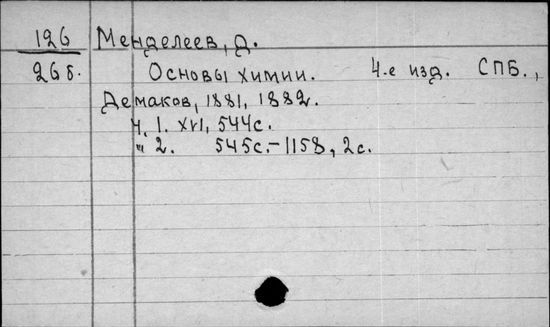 126 Менделеев, Д.
26б. Основы химии. 4-е изд. СПБ.,
Демаков, 1881, 1882.
Ч. 1. XVI, 544с.
" 2. 545с.-1158, 2с.